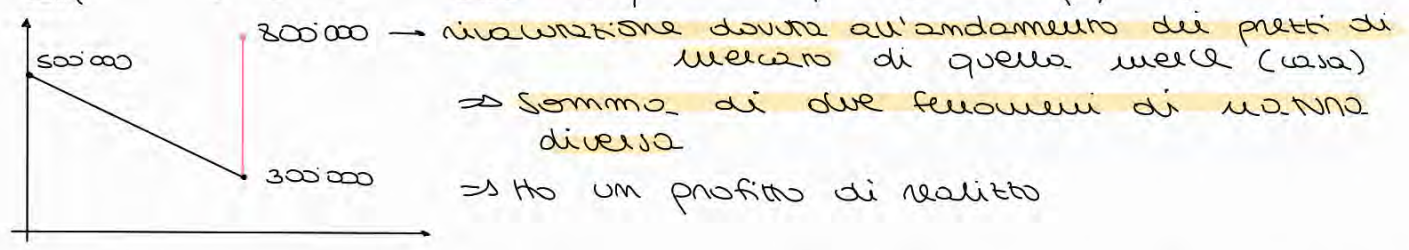 500'000
800'000 → rivalutazione dovuta all'andamento dei prezzi di
mercato di quella merce (casa)
⇒ Somma di due fenomeni di natura
diversa
300'000
⇒ Ho un profitto di realizzo